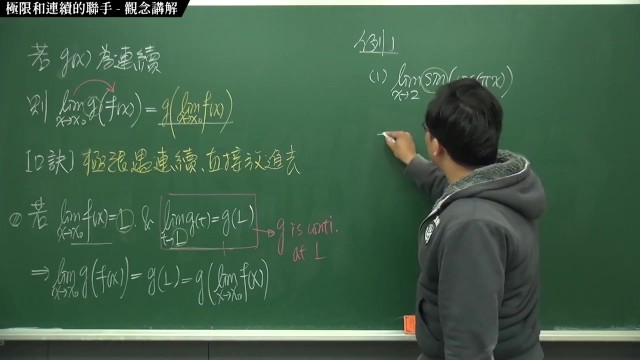 極限和連續的聯手 - 觀念講解
若 g(x) 為連續
則 lim x→x₀ g(f(x)) = g(lim x→x₀ f(x))
[口訣] 極限遇連續、直接放進去
若 lim x→x₀ f(x) = L & lim t→L g(t) = g(L)
g is conti.
at L
⇒ lim x→x₀ g(f(x)) = g(L) = g(lim x→x₀ f(x))
例 1
(1) lim x→2 sin(